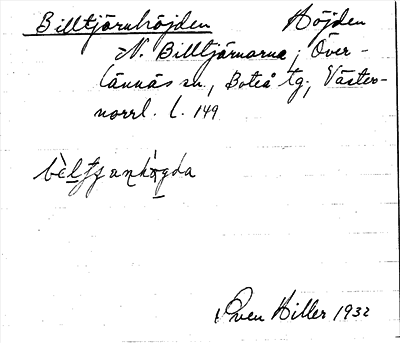 Billtjärnhöjden Höjden
N. Billtjärnarna, Över-
lännäs sn, Boteå tg, Väster-
norrl. l. 149
bèltjanhøgda
Sven Hiller 1932